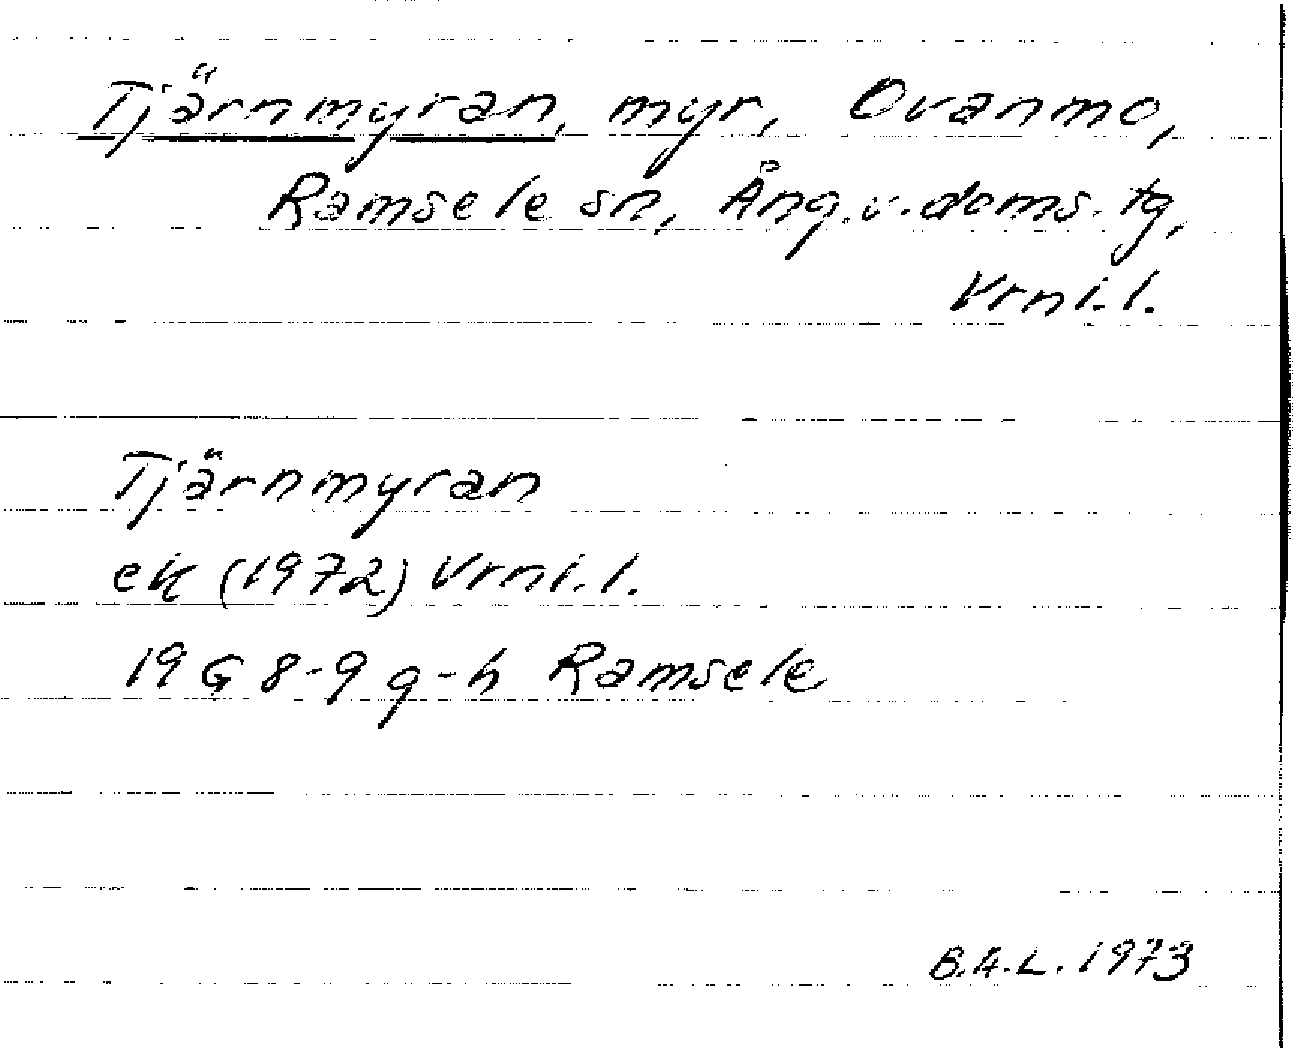 Tjärnmyran, myr, Ovanmo,
Ramsele sn, Ång.v.doms.tg,
Vrnl.l.
Tjärnmyran
ek (1972) Vrnl.l.
19 G 8-9 g-h Ramsele
B.Å.L. 1973